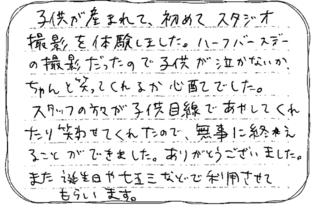 子供が産まれて、初めてスタジオ
撮影を体験しました。ハーフバースデー
の撮影だったので子供が泣かないか、
ちゃんと笑ってくれるか心配でした。
スタッフの方が子供目線であやしてくれ
たり笑わせてくれたので、無事に終わえ
ることができました。ありがとうございました。
また誕生日や七五三などで利用させて
もらいます。